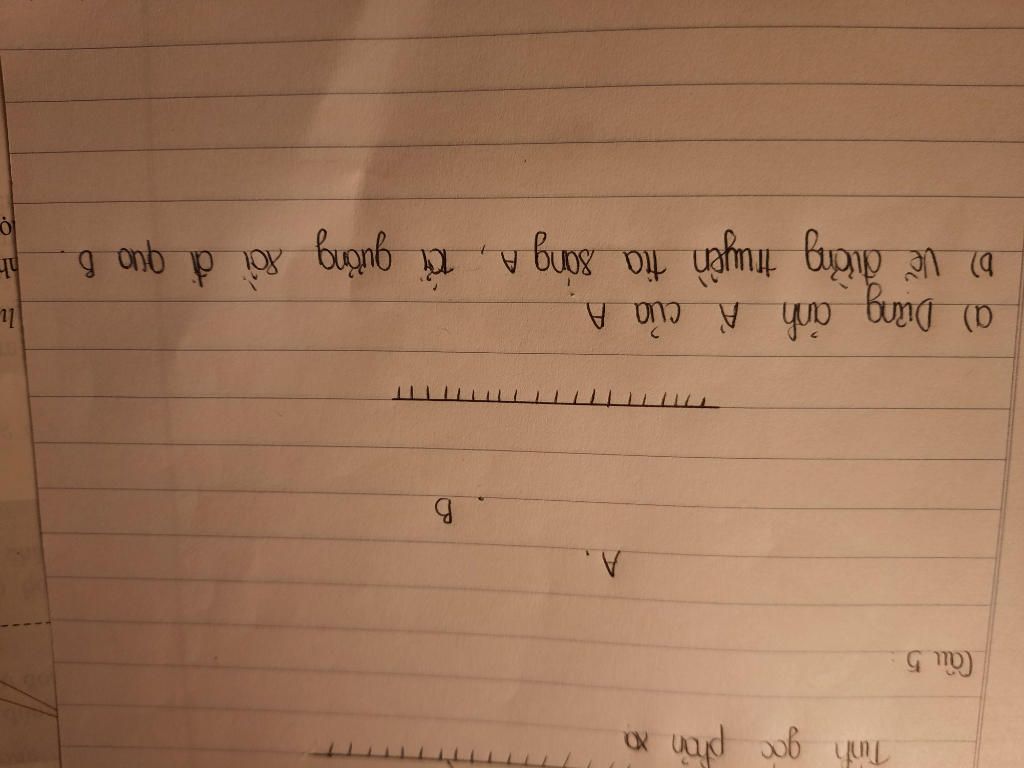 Tính góc phản xạ
Câu 5:
A.
. B
a) Dựng ảnh A' của A
b) Vẽ đường truyền tia sáng A, tới gương rồi đi qua B.